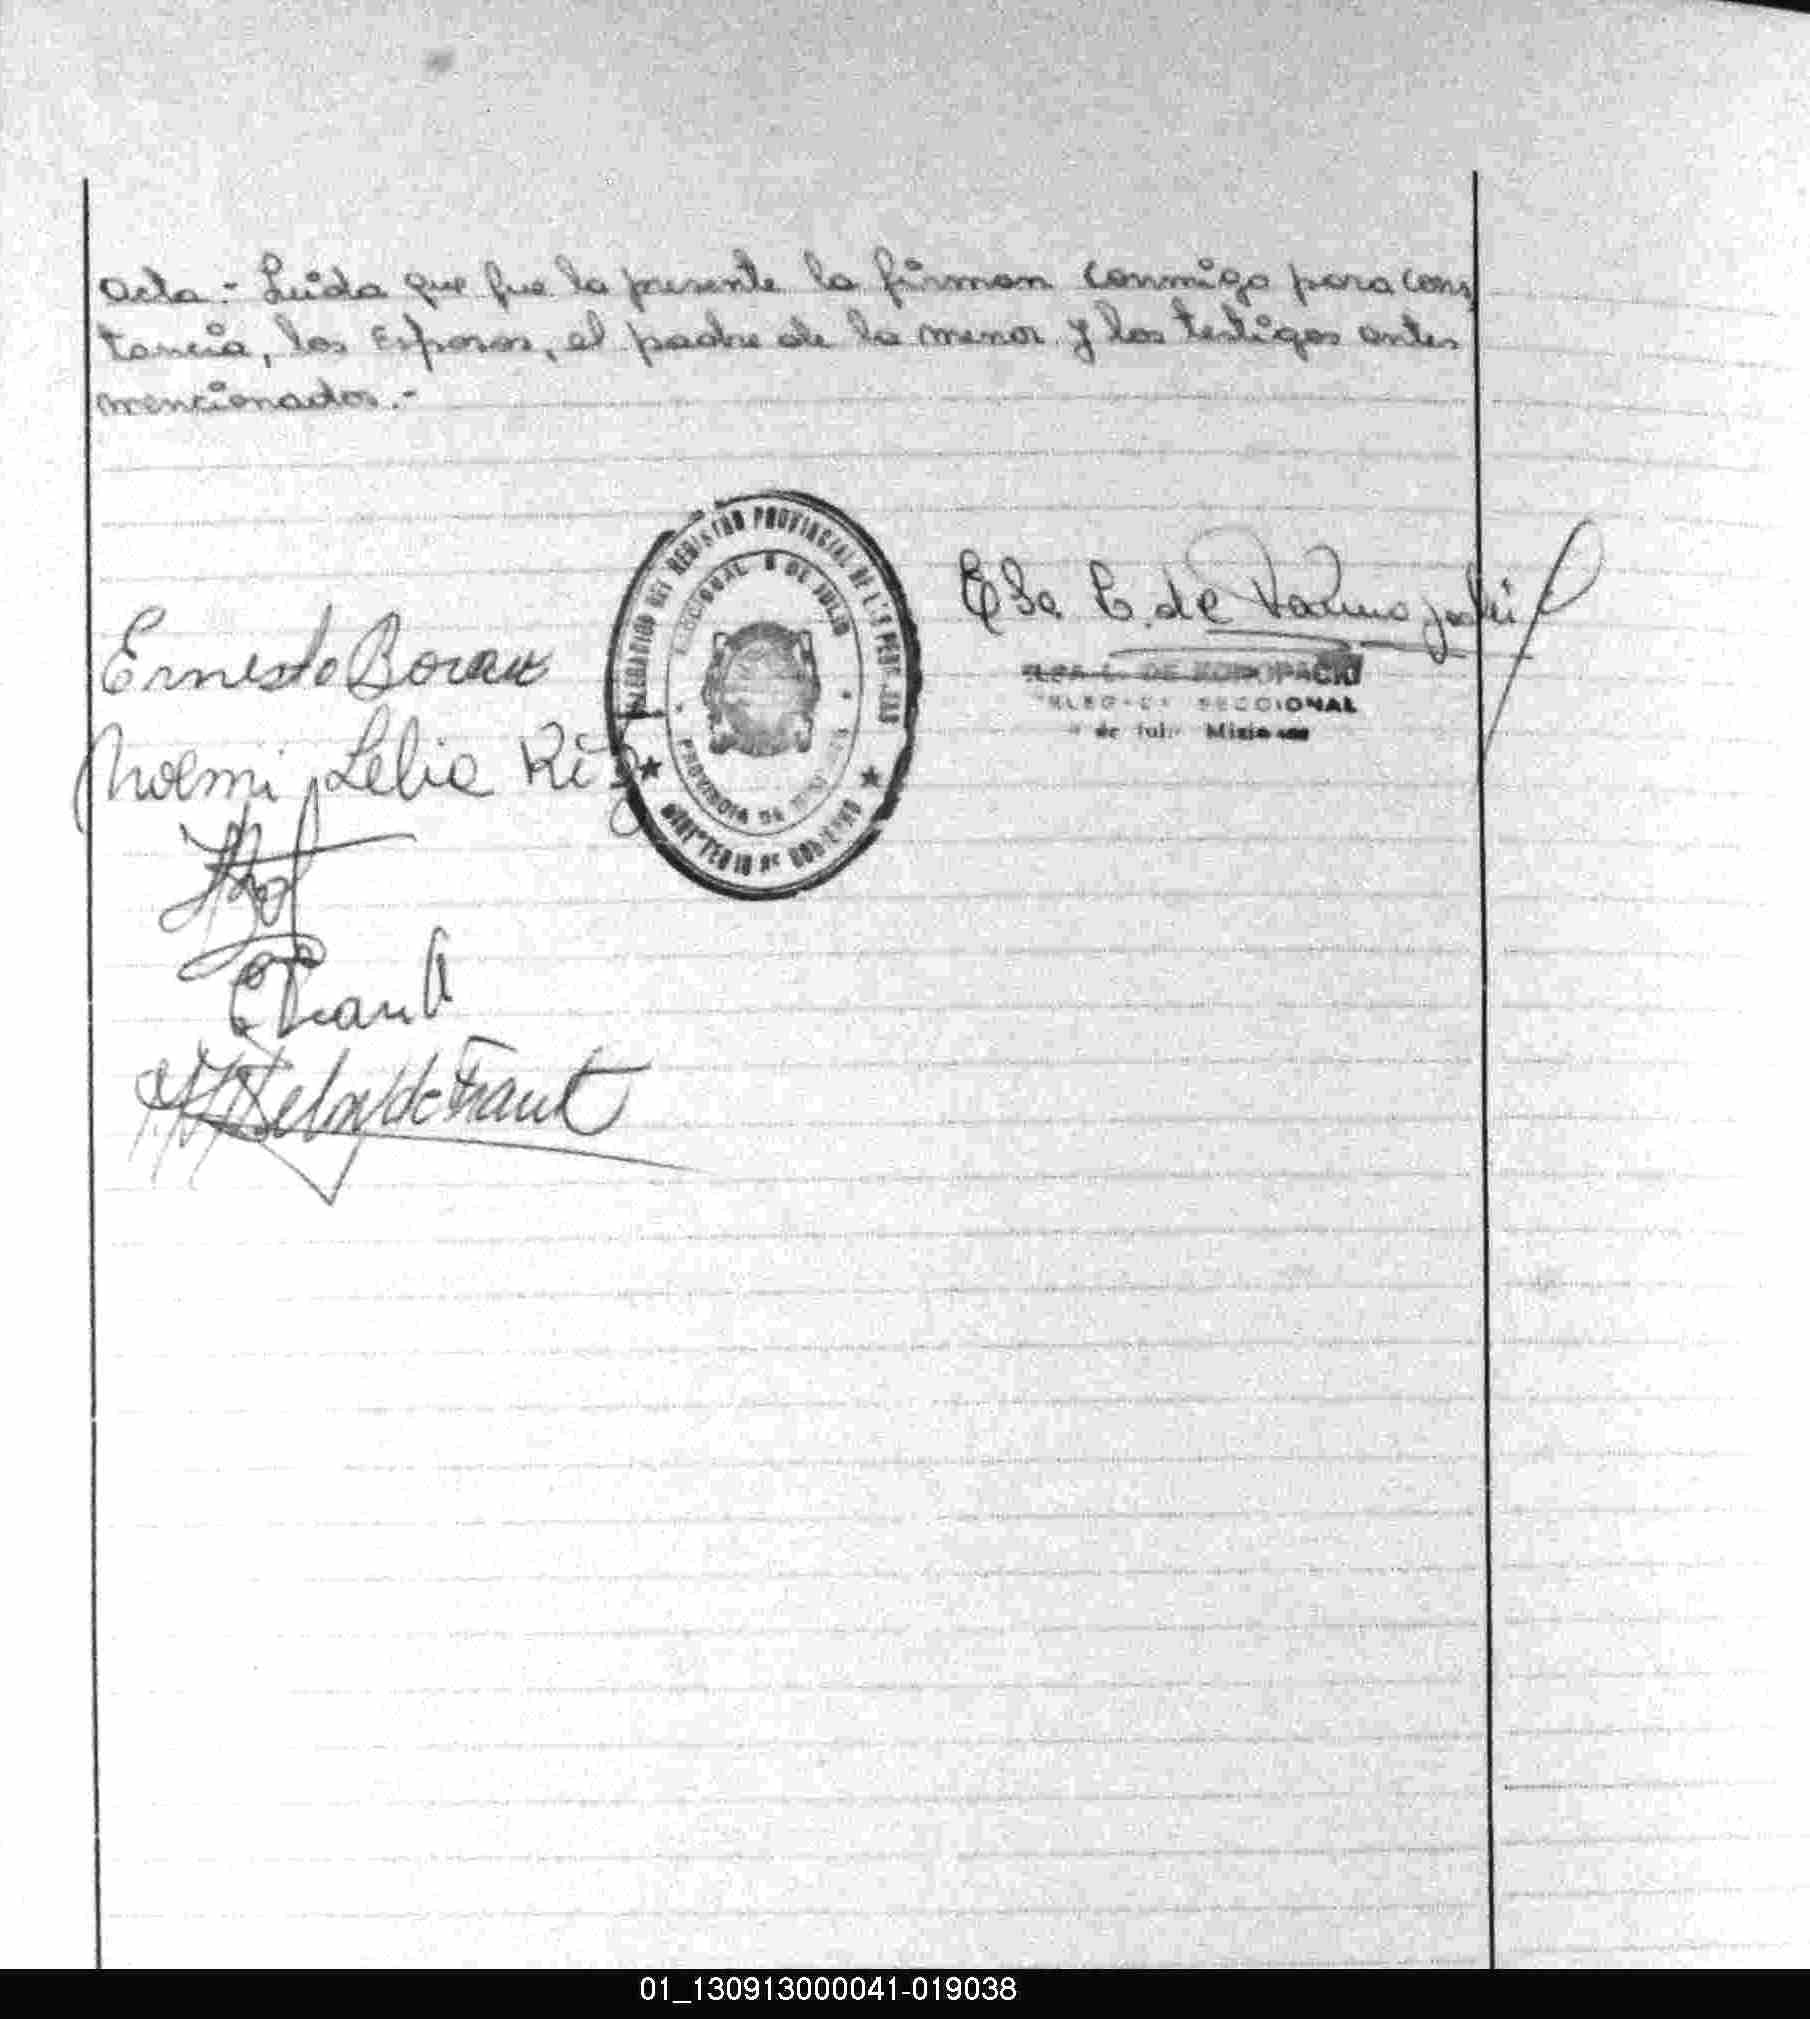 acta.- Leida que fue la presente la firman conmigo para cons
tancia, los Esposos, el padre de la menor y los testigos antes
mencionados.-
DELEGACION DEL REGISTRO PROVINCIAL DE LAS PERSONAS
SECCIONAL 9 DE JULIO
PROVINCIA DE MISIONES
MINISTERIO DE GOBIERNO
Elsa C. de
ELSA C. DE KONOPACKI
DELEGADA SECCIONAL
9 de Julio Misiones
Ernesto
Noemi Lelia
de Traut
01_130913000041-019038